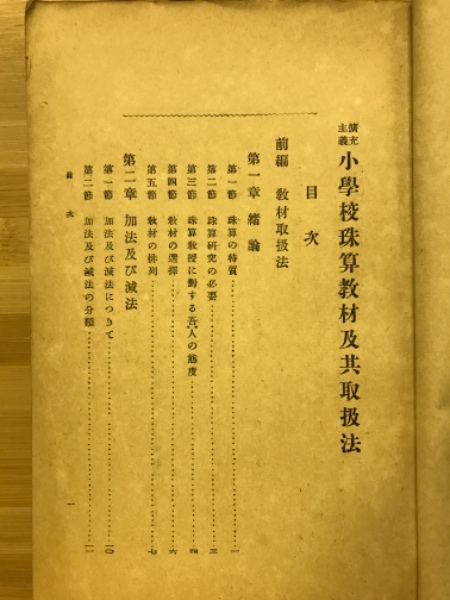 擴充主義 小學校珠算教材及其取扱法
目次
前編 教材取扱法
第一章 緖論
第一節 珠算の特質……一
第二節 珠算研究の必要……三
第三節 珠算敎授に對する吾人の態度……四
第四節 敎材の選擇……六
第五節 敎材の排列……七
第二章 加法及び減法
第一節 加法及び減法について……一〇
第二節 加法及び減法の分類……一一
目次
一